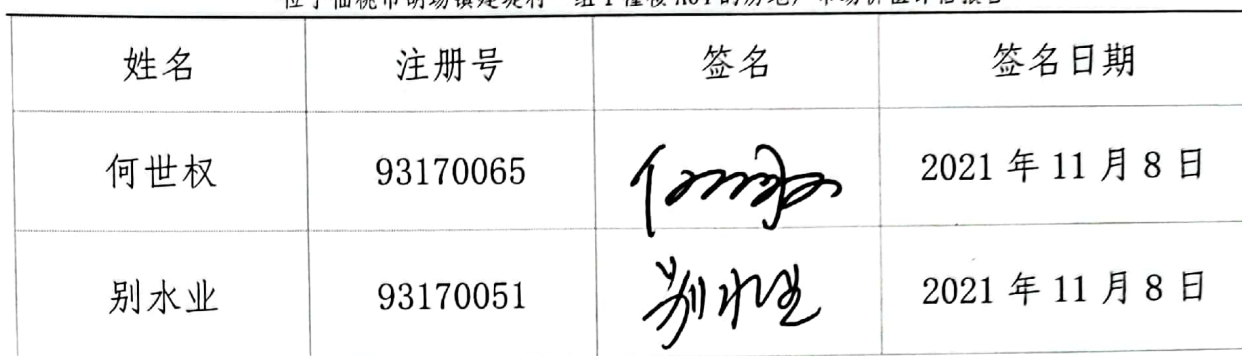 姓名 注册号 签名 签名日期
何世权 93170065 2021年11月8日
别水业 93170051 别水业 2021年11月8日